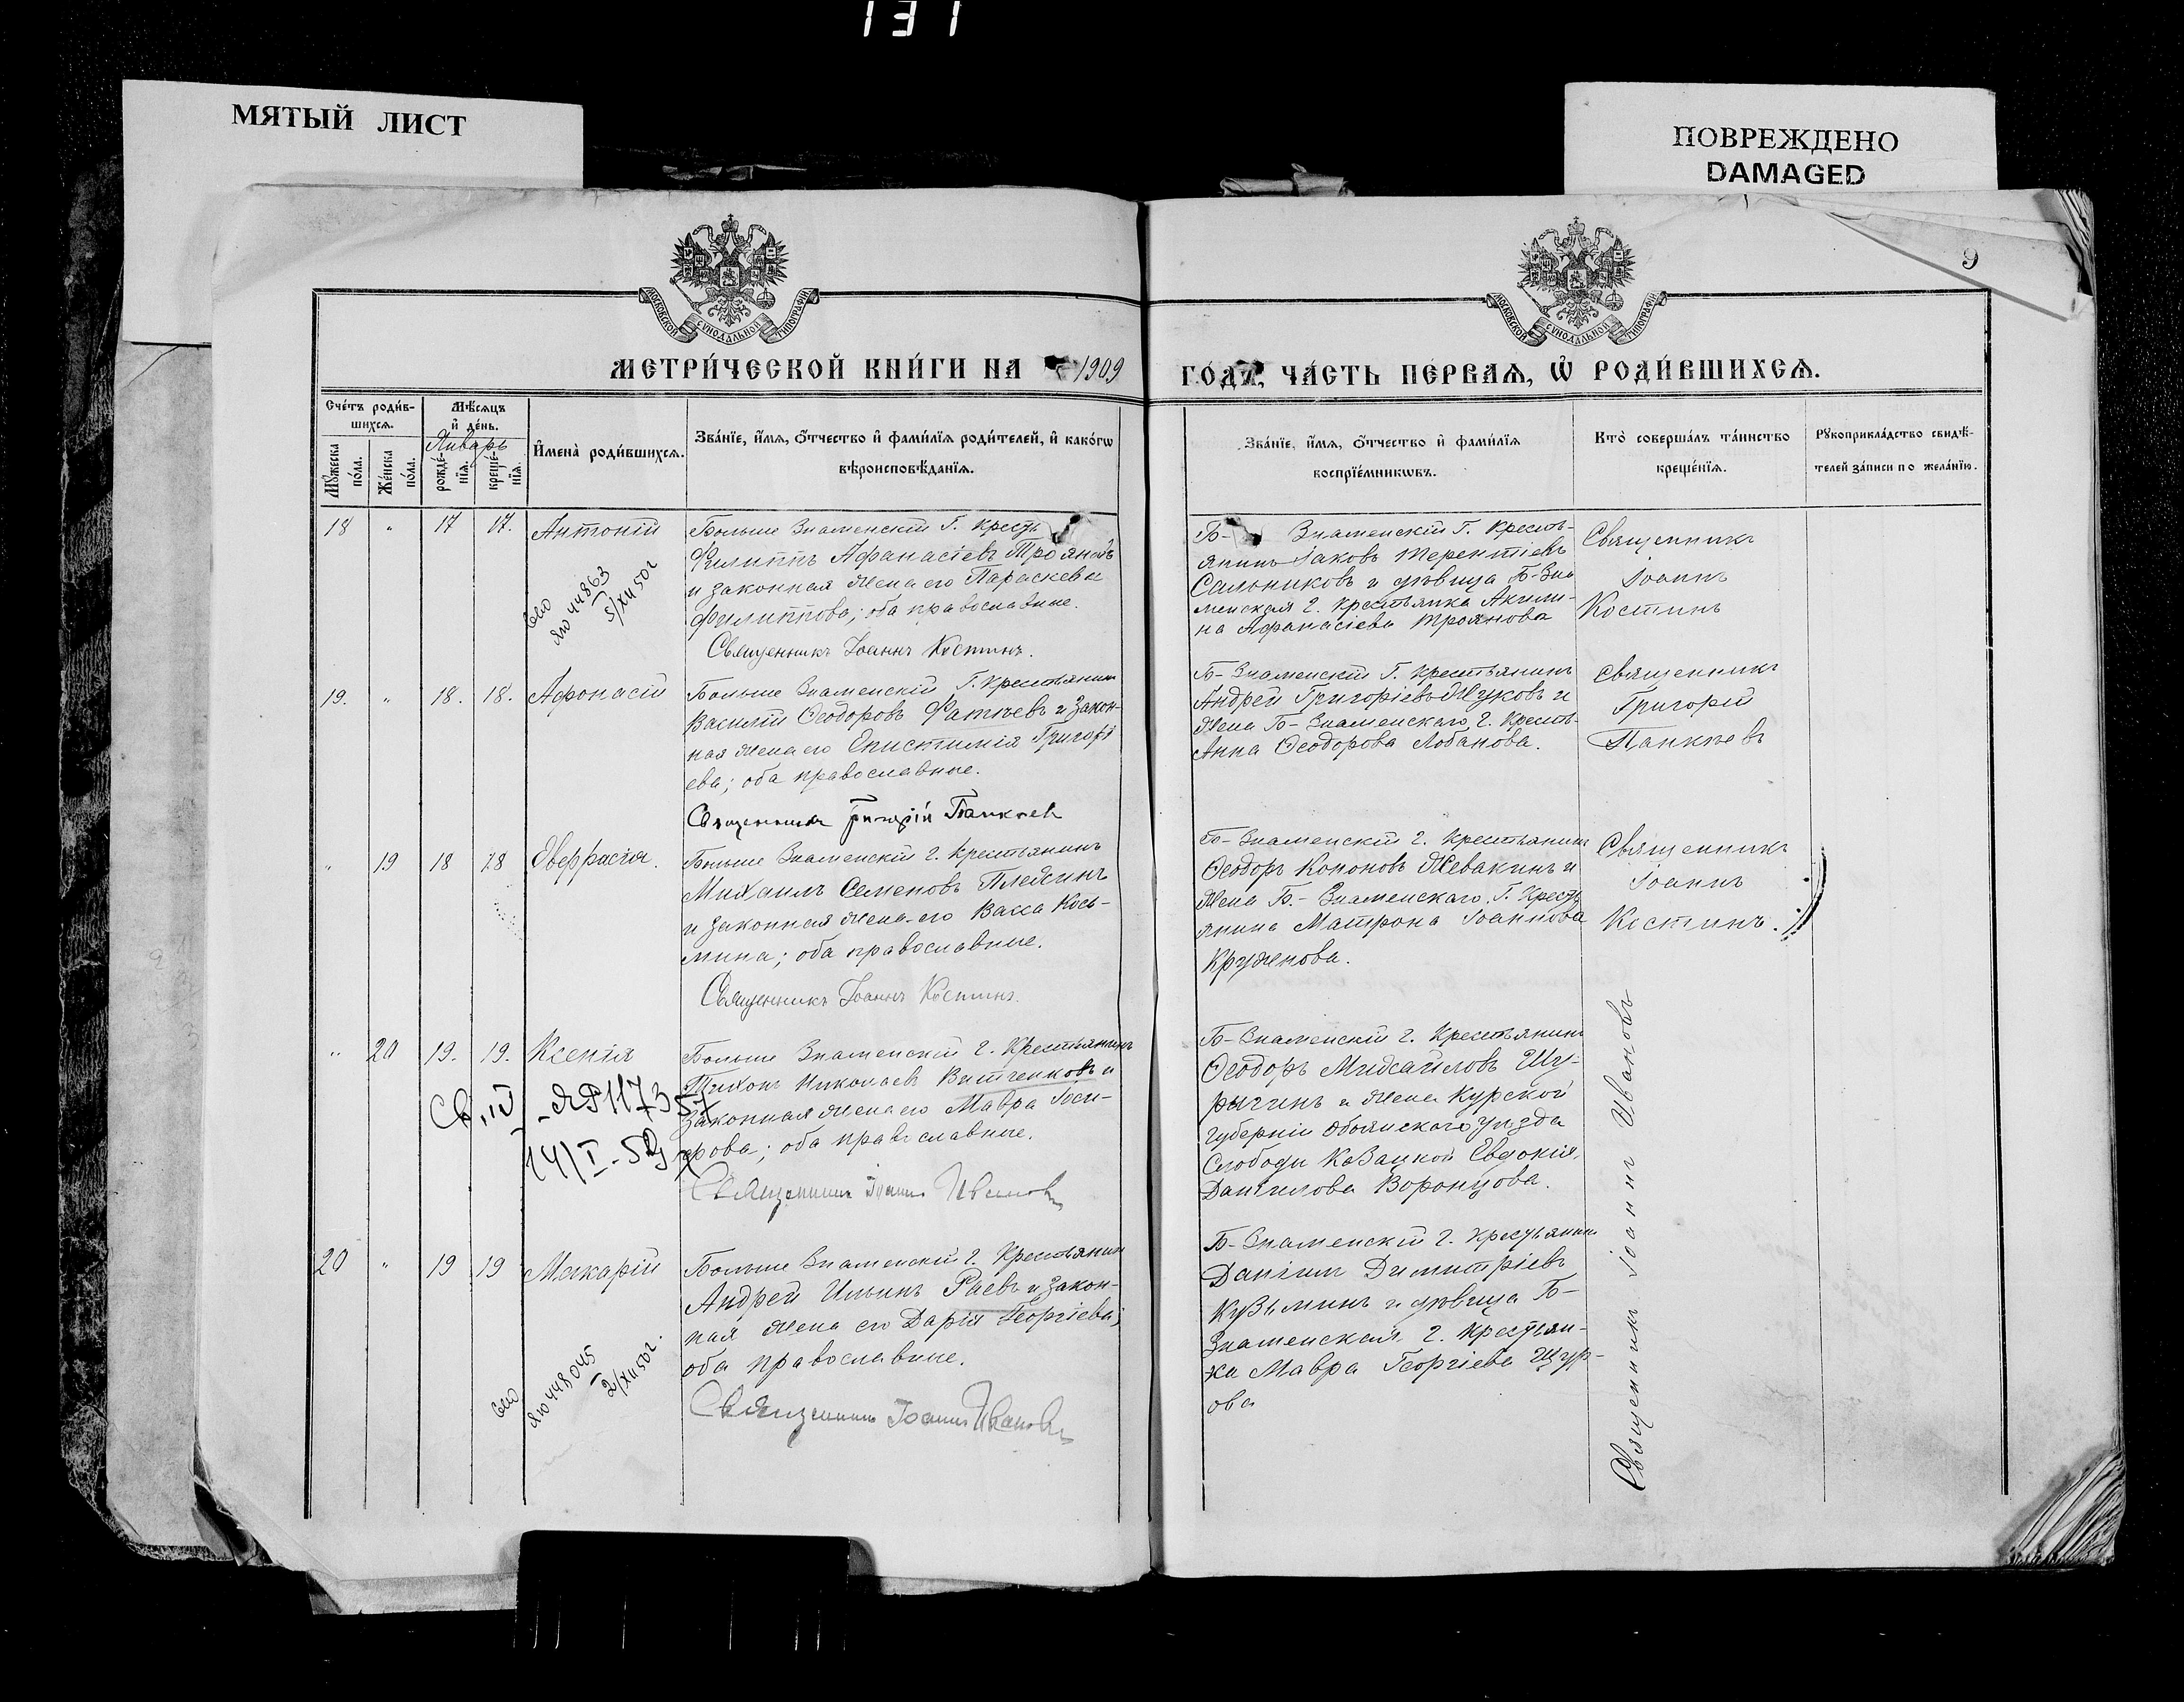 131
МЯТЫЙ ЛИСТ
ПОВРЕЖДЕНО
DAMAGED
9
МОСКОВСКОЙ СѴНОДАЛЬНОЙ ТИПОГРАФІИ
МОСКОВСКОЙ СѴНОДАЛЬНОЙ ТИПОГРАФІИ
МЕТРИ́ЧЕСКОЙ КНИ́ГИ НА 1909
ГОДЪ, ЧА́СТЬ ПЕ́РВАѦ, Ѡ҆ РОДИ́ВШИХСѦ.
Сче́тъ роди́в-
шихсѧ.
Мꙋ́жеска по́ла.
Же́нска по́ла.
Мѣ́сѧцъ
и҆ де́нь.
Январь
рожде́-
нїѧ.
креще́-
нїѧ.
И҆мена̀ роди́вшихсѧ.
Зва́нїе, и҆́мѧ, ѻ҆́тчество и҆ фами́лїѧ роди́телей, и҆ како́гѡ
вѣроисповѣ́данїѧ.
Зва́нїе, и҆́мѧ, ѻ҆́тчество и҆ фами́лїѧ
воспрїе́мникѡвъ.
Кто̀ соверша́лъ та́инство
креще́нїѧ.
Рꙋкоприкла́дство свидѣ́-
телей за́писи по жела́нїю.
18 " 17 17. Антоній
Больше Знаменскій Г. Кресть
Филиппъ Афанасіевъ Трояновъ
и законная жена его Параскева
Филиппова; оба православные.
Священникъ Іоаннъ Костинъ.
5/XII 50 г
Б- Знаменскій Г. Кресть-
янинъ Іаковъ Терентіевъ
Сальниковъ и дѣвица Б-Зна
менская г. крестьянка Акили-
на Афанасіева Троянова
Священникъ
Іоаннъ
Костинъ
19. " 18. 18. Афонасій
Больше Знаменскій Г. Крестьянинъ
Василій Ѳеодоровъ Фатѣевъ и Закон-
ная жена его Епистимія Григорі
ева; оба православные.
Священникъ Григорій Панкѣевъ
Б-Знаменскій Г. Крестьянинъ
Андрей Григоріевъ Жуковъ и
жена Б-Знаменскаго г. Кресть-
Анна Ѳеодорова Лобанова.
Священникъ
Григорій
Панкѣевъ
" 19 18 18 Евфрасія.
Больше Знаменскій г. Крестьянинъ
Михаилъ Семеновъ Плехинъ
и законная жена его Васса Кось-
мина; оба православные.
Священникъ Іоаннъ Костинъ.
Б-Знаменскій г. Крестьянинъ
Ѳеодоръ Кононовъ Жевакинъ и
жена Б.-Знаменскаго. Г. Кресть
янина Матрона Іоаннова
Круженова.
Священникъ
Іоаннъ
Костинъ.
" 20 19. 19. Ксенія
Больше Знаменскій г. Крестьянинъ
Тихонъ Николаевъ Витченковъ и
законная жена его Мавра Іоси-
фова; оба православные.
Священникъ Іоаннъ Ивановъ
Б-Знаменскій г. Крестьянинъ
Ѳеодоръ Михаиловъ Щу-
рыгинъ и жена Курской
губерніи Обоянскаго уѣзда
Слободы Казацкой Евдокія
Даніилова Воронцова.
20 " 19 19 Макарій
Больше Знаменскій г. Крестьянинъ
Андрей Ильинъ Раевъ и закон-
ная жена его Дарія Георгіева;
оба православные.
Священникъ Іоаннъ Ивановъ
ЯЮ 448045
2/XII 50 г.
Б-Знаменскій г. Крестьянинъ
Даніилъ Димитріевъ
Кузьминъ и дѣвица Б-
Знаменская г. Крестьян-
ка Мавра Георгіева Щур-
ова
Священникъ Іоаннъ Ивановъ